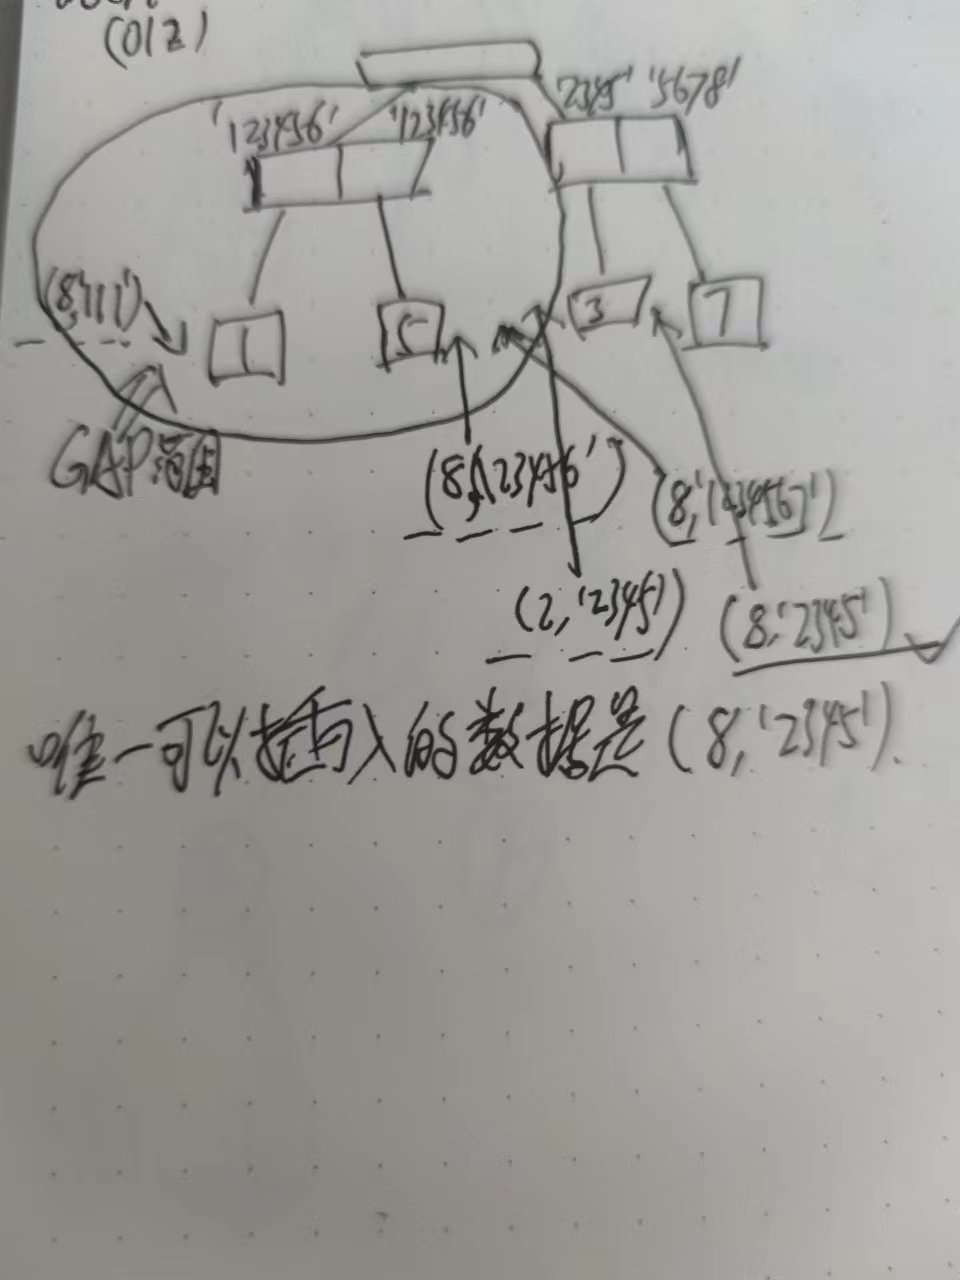 (012)
'123456' '123456' '2345' '5678'
(8,'111') 1 5 3 7
GAP范围
(8,'123456')
(8,'1234567')
(2,'2345')
(8,'2345')
唯一可以插入的数据是(8,'2345').